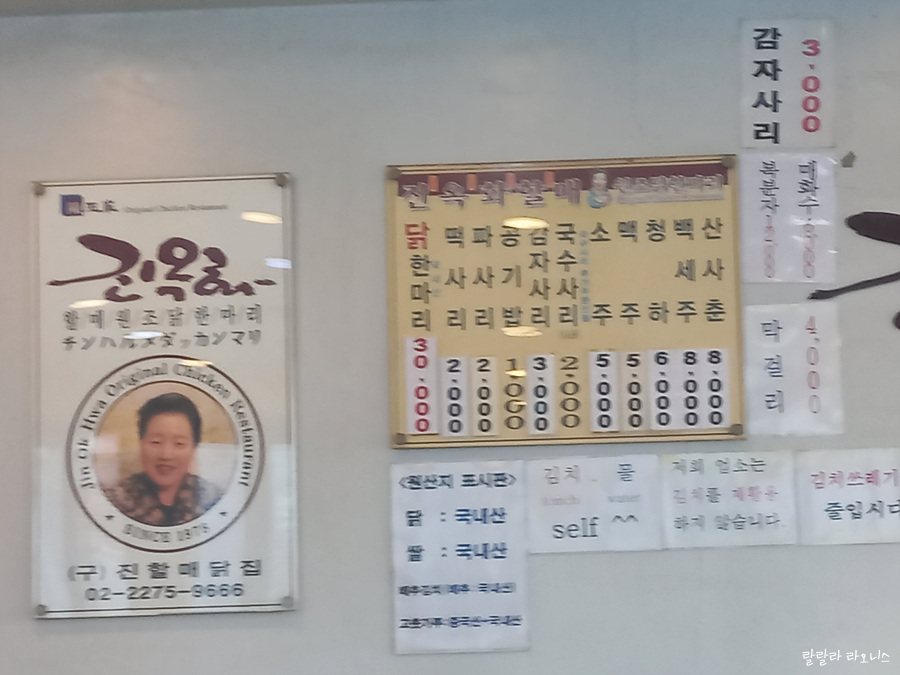 Original Chicken Restaurant
진옥화
할매원조닭한마리
チンハルメタッカンマリ
Jin Ok Hwa Original Chicken Restaurant
SINCE 1978
(구) 진할매닭집
02-2275-9666
진옥화할매
닭한마리 30,000
떡사리 2,000
파사리 2,000
공기밥 1000
감자사리 3,000
국수사리 2,000
소주 5,000
맥주 5,000
청하 6,000
백세주 8,000
산사춘 8,000
감자사리 3,000
매화수
복분자
막걸리 4,000
<원산지 표시판>
닭 : 국내산
쌀 : 국내산
배추김치(배추:국내산)
고춧가루:중국산+국내산
김치. 물
kimchi water
self ^^
저희 업소는
김치를 재활용
하지 않습니다.
김치쓰레기
줄입시다
랄랄라 라오니스